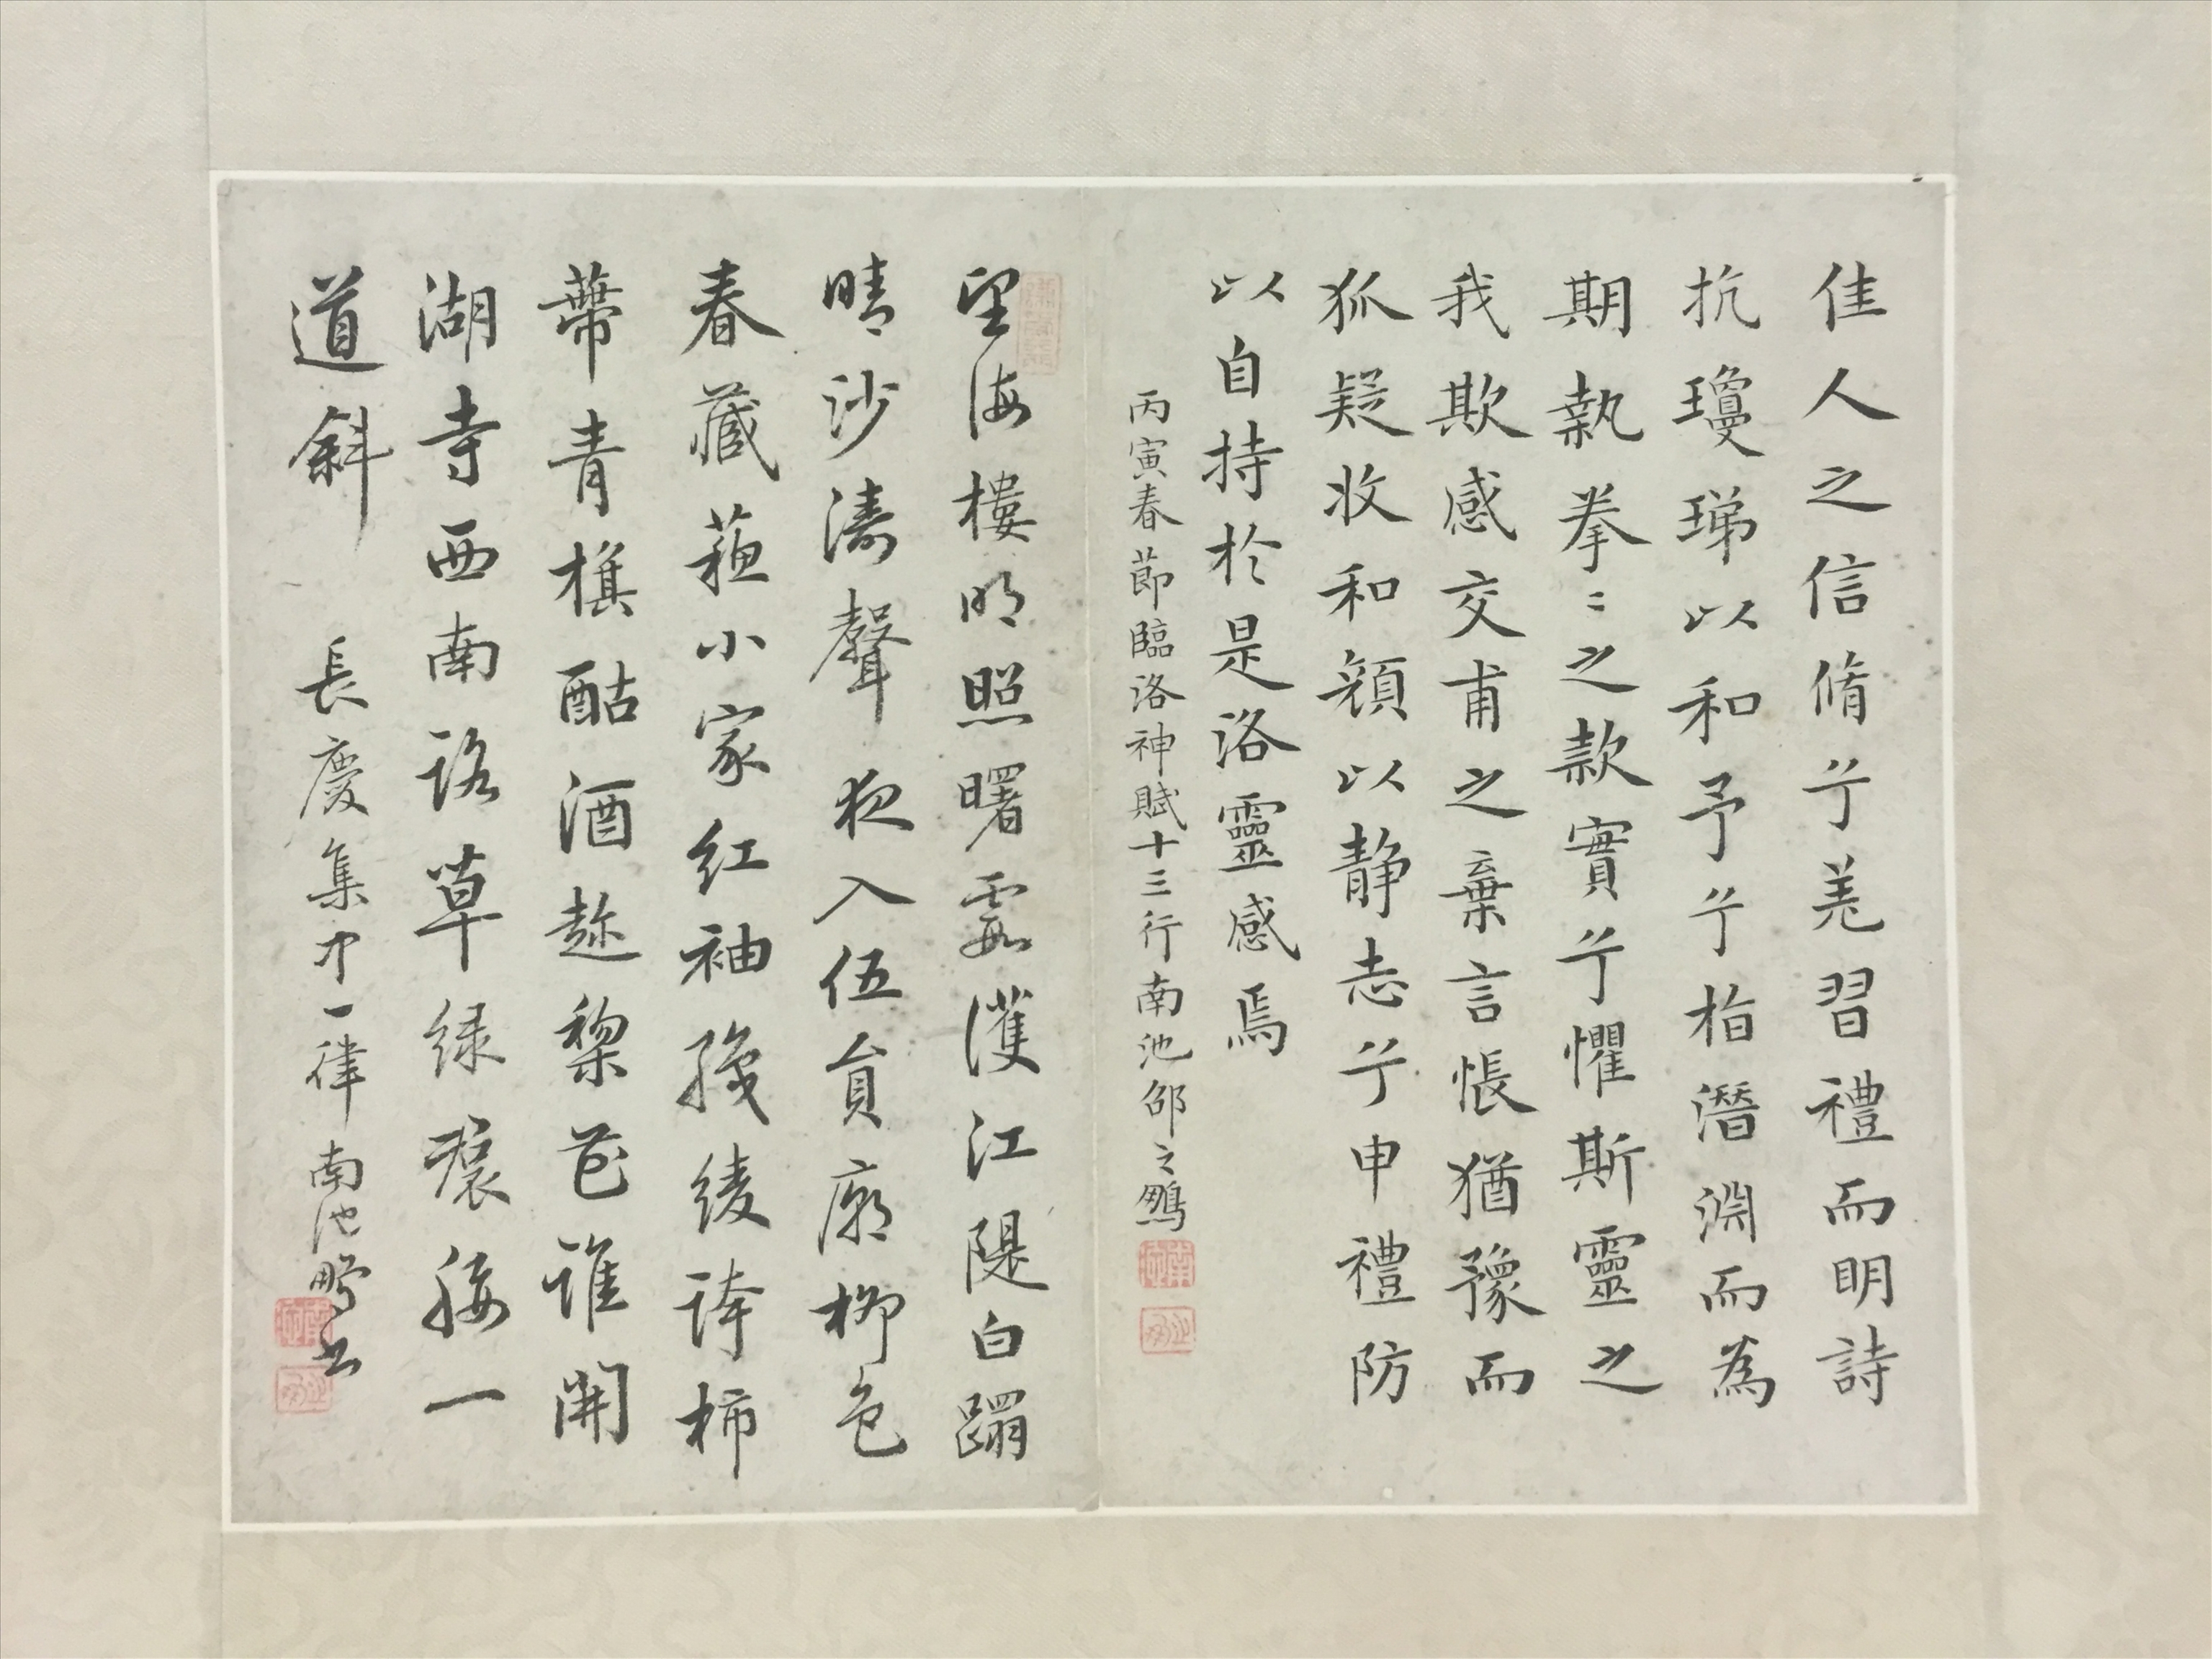 佳人之信脩兮羌習禮而明詩
抗瓊珶以和予兮指潛淵而為
期執拳〻之款實兮懼斯靈之
我欺感交甫之棄言悵猶豫而
狐疑收和顏以静志兮申禮防
以自持於是洛靈感焉
丙寅春節臨洛神賦十三行南池邵之鵬
望海樓明照曙霞濩江隄白蹋
晴沙濤聲夜入伍員廟柳色
春藏蘇小家紅袖織綾誇柿
蔕青旗酤酒趂棃花誰開
湖寺西南路草緑裠腰一
道斜
長慶集中一律南池鵬書
南池
之鵬
南池
之鵬